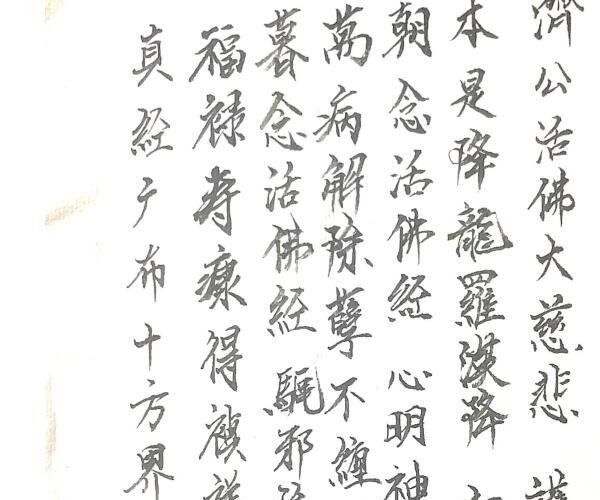 濟公活佛大慈悲
本是降龍羅漢降
朝念活佛經 心明神
萬病解除孽不纏
暮念活佛經 驅邪
福禄寿康得禎
真经广布十方界